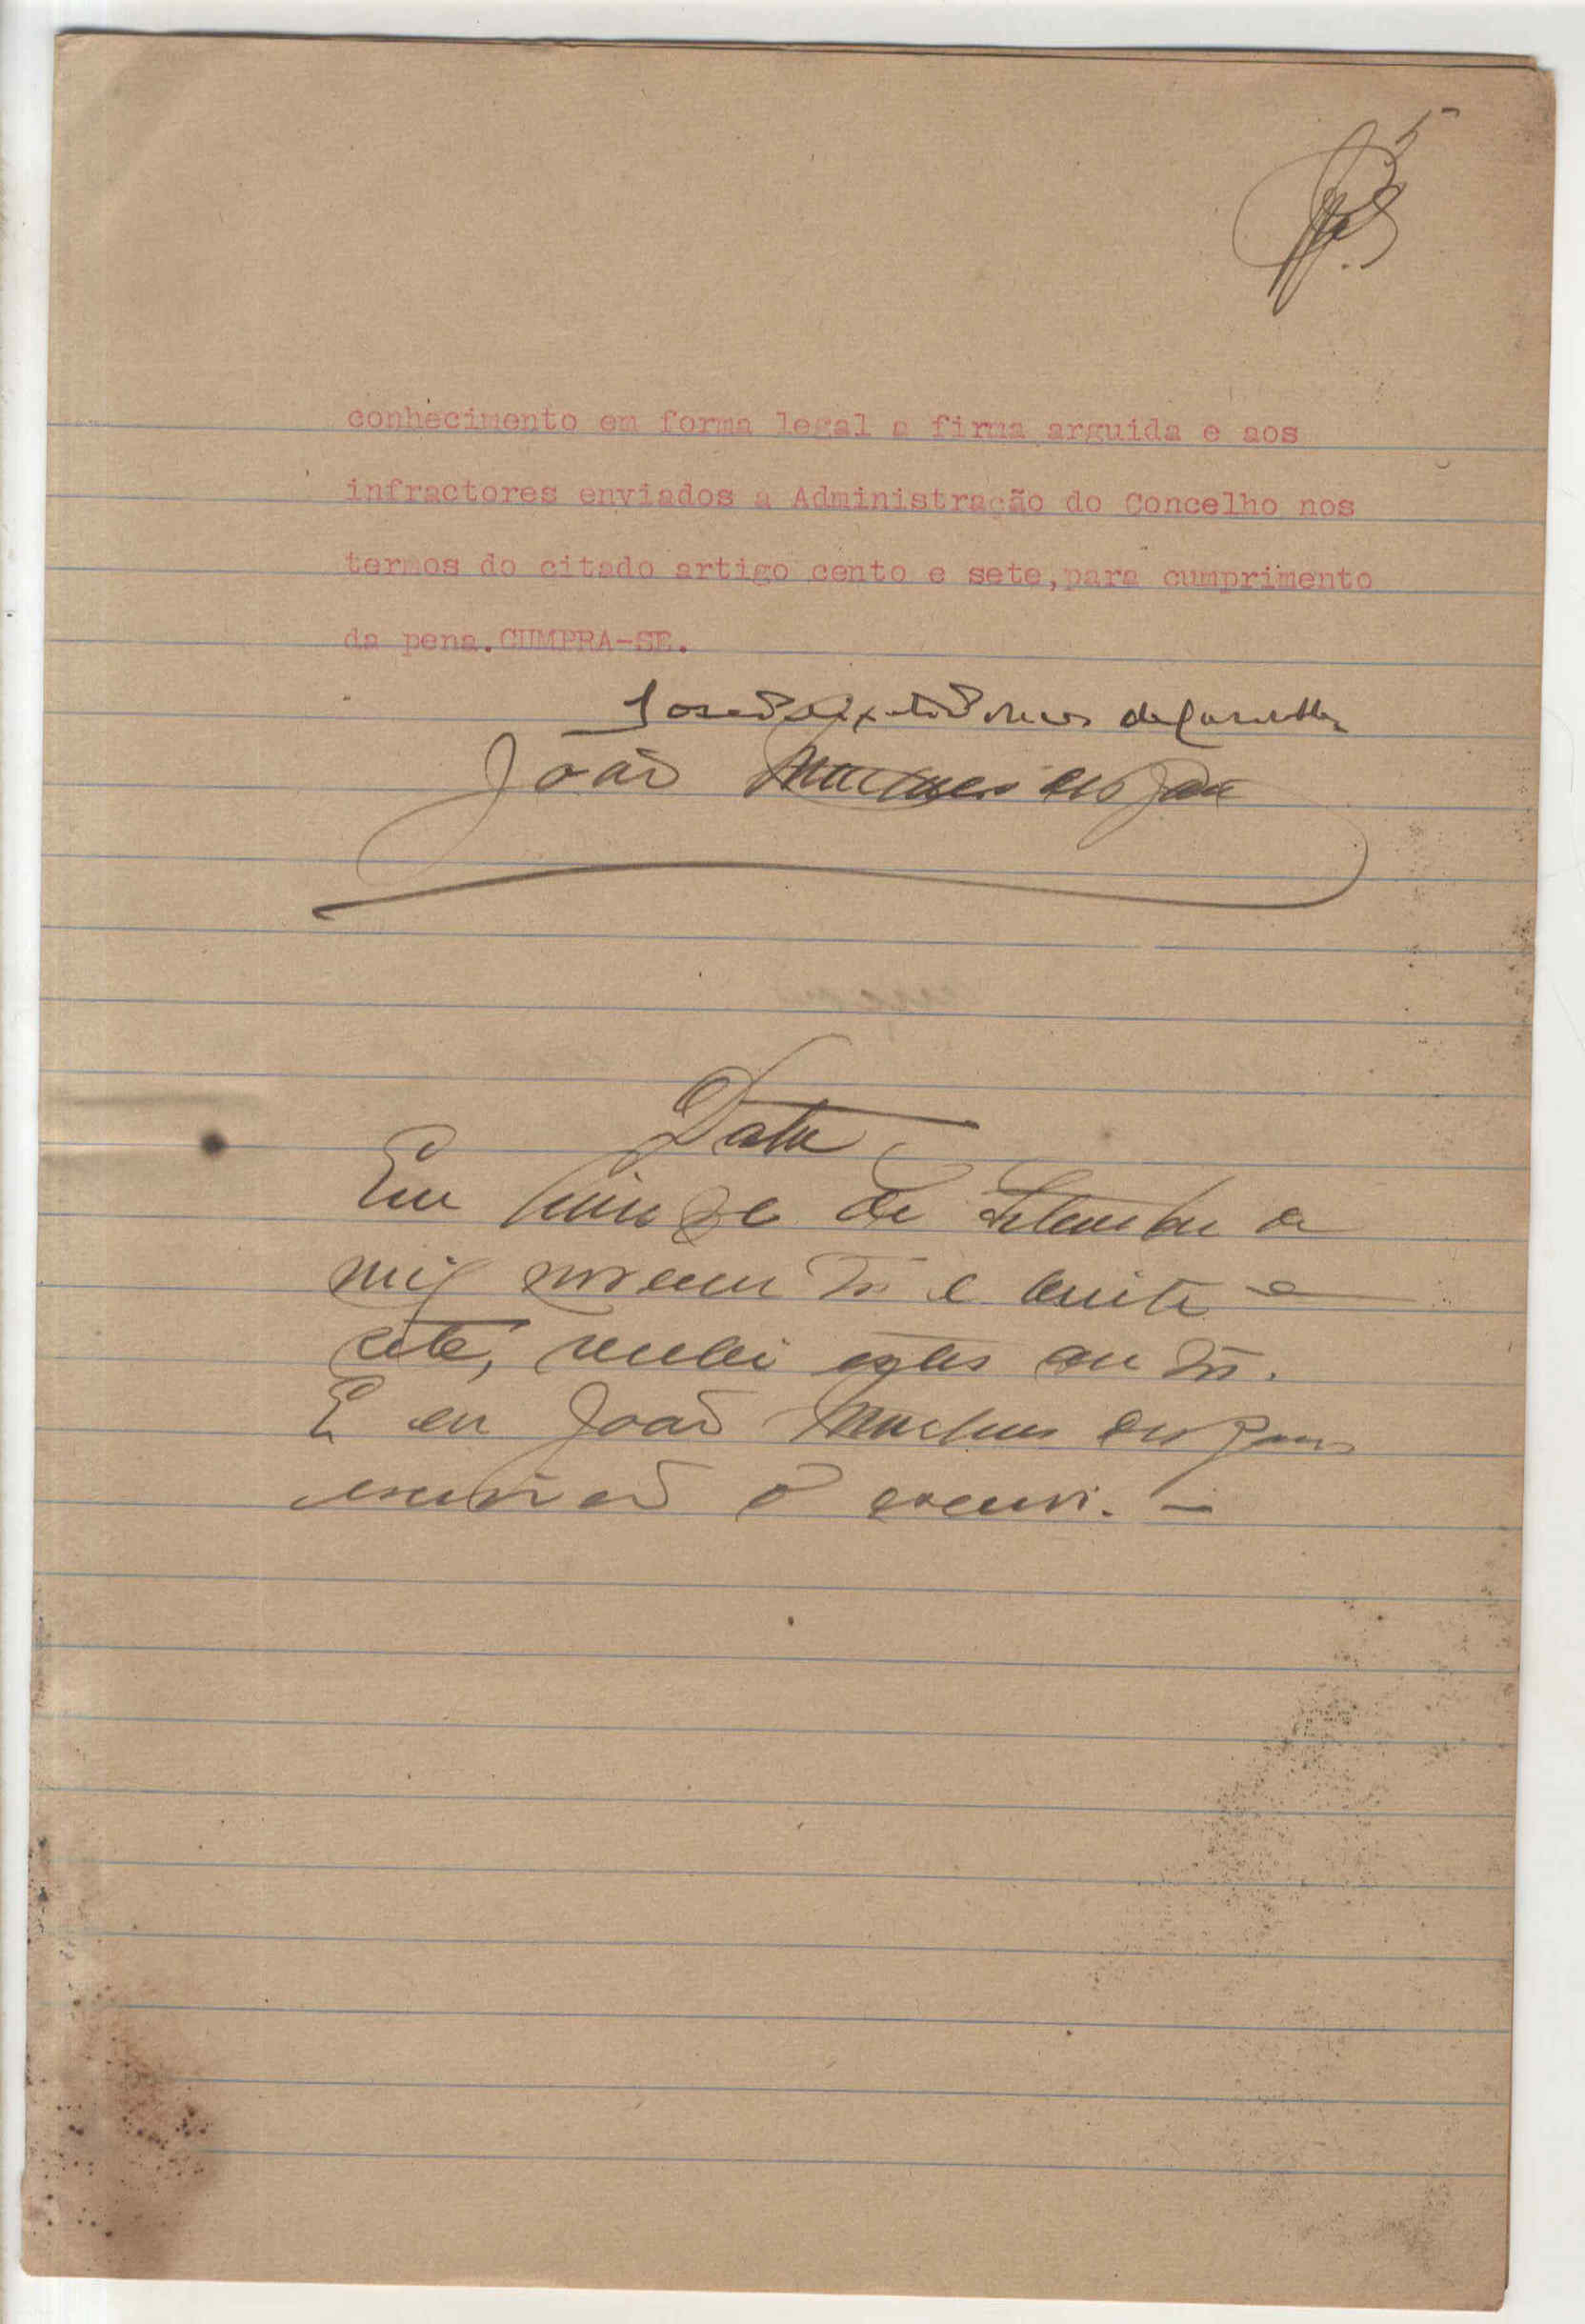 5
conhecimento em forma legal a firma arguida e aos
infractores enviados a Administração do Concelho nos
termos do citado artigo cento e sete,para cumprimento
da pena.CUMPRA-SE.
José
João
Data
Em quinze de Setembro de
mil novecentos e trinta e
sete, recebi estes autos.
E eu João
escrivão o escrevi. —